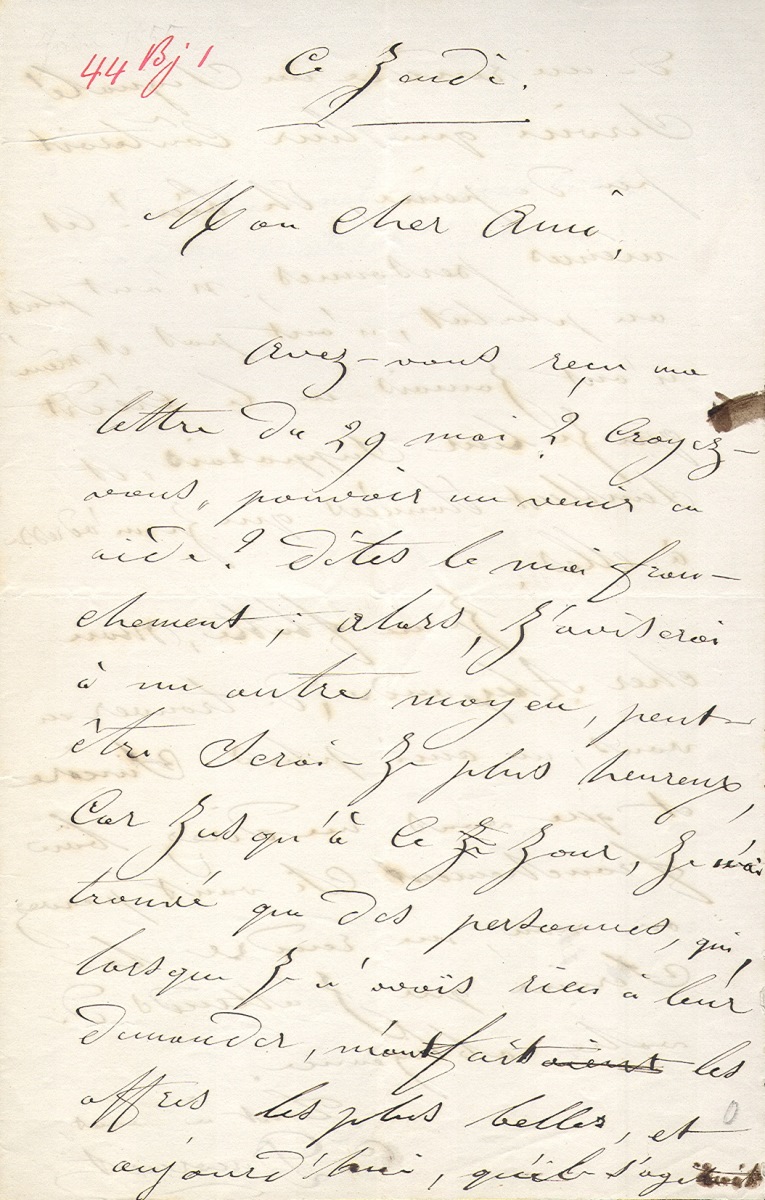 44 Bj 1
Ce Jeudi.
Mon cher Ami,
Avez-vous reçu ma
lettre du 29 mai ? Croyez-
vous, pouvoir me venir en
aide ? Dîtes le moi fran-
chement ; alors, j'aviserai
à un autre moyen, peut-
être serai-je plus heureux,
Car jusqu'à ce jour, je n'ai
trouvé que des personnes, qui,
lorsque je n'avais rien à leur
demander, m'ont fait les
offres les plus belles, et
aujourd'hui, qu'il s'agit